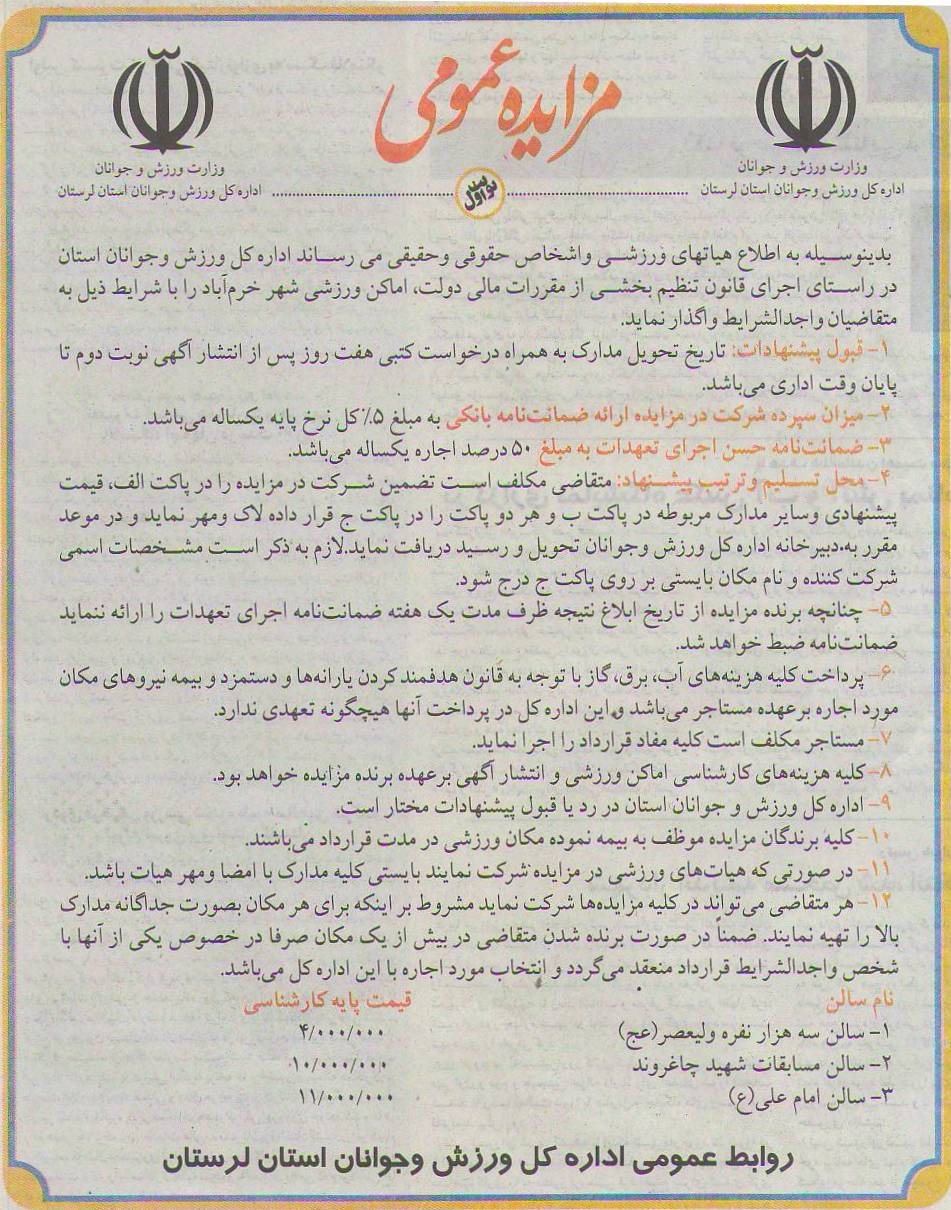 مزایده عمومی
وزارت ورزش و جوانان
اداره کل ورزش وجوانان استان لرستان
وزارت ورزش و جوانان
اداره کل ورزش وجوانان استان لرستان
نوبت اول
بدینوسیله به اطلاع هیاتهای ورزشی واشخاص حقوقی وحقیقی می رساند اداره کل ورزش وجوانان استان
در راستای اجرای قانون تنظیم بخشی از مقررات مالی دولت، اماکن ورزشی شهر خرم‌آباد را با شرایط ذیل به
متقاضیان واجدالشرایط واگذار نماید.
۱- قبول پیشنهادات: تاریخ تحویل مدارک به همراه درخواست کتبی هفت روز پس از انتشار آگهی نوبت دوم تا
پایان وقت اداری می‌باشد.
۲- میزان سپرده شرکت در مزایده ارائه ضمانت‌نامه بانکی به مبلغ ۵٪ کل نرخ پایه یکساله می‌باشد.
۳- ضمانت‌نامه حسن اجرای تعهدات به مبلغ ۵۰ درصد اجاره یکساله می‌باشد.
۴- محل تسلیم وترتیب پیشنهاد: متقاضی مکلف است تضمین شرکت در مزایده را در پاکت الف، قیمت
پیشنهادی وسایر مدارک مربوطه در پاکت ب و هر دو پاکت را در پاکت ج قرار داده لاک ومهر نماید و در موعد
مقرر به دبیرخانه اداره کل ورزش وجوانان تحویل و رسید دریافت نماید.لازم به ذکر است مشخصات اسمی
شرکت کننده و نام مکان بایستی بر روی پاکت ج درج شود.
۵- چنانچه برنده مزایده از تاریخ ابلاغ نتیجه ظرف مدت یک هفته ضمانت‌نامه اجرای تعهدات را ارائه ننماید
ضمانت‌نامه ضبط خواهد شد.
۶- پرداخت کلیه هزینه‌های آب، برق، گاز با توجه به قانون هدفمند کردن یارانه‌ها و دستمزد و بیمه نیروهای مکان
مورد اجاره برعهده مستاجر می‌باشد و این اداره کل در پرداخت آنها هیچگونه تعهدی ندارد.
۷- مستاجر مکلف است کلیه مفاد قرارداد را اجرا نماید.
۸- کلیه هزینه‌های کارشناسی اماکن ورزشی و انتشار آگهی برعهده برنده مزایده خواهد بود.
۹- اداره کل ورزش و جوانان استان در رد یا قبول پیشنهادات مختار است.
۱۰- کلیه برندگان مزایده موظف به بیمه نموده مکان ورزشی در مدت قرارداد می‌باشند.
۱۱- در صورتی که هیات‌های ورزشی در مزایده شرکت نمایند بایستی کلیه مدارک با امضا ومهر هیات باشد.
۱۲- هر متقاضی می‌تواند در کلیه مزایده‌ها شرکت نماید مشروط بر اینکه برای هر مکان بصورت جداگانه مدارک
بالا را تهیه نمایند. ضمناً در صورت برنده شدن متقاضی در بیش از یک مکان صرفا در خصوص یکی از آنها با
شخص واجدالشرایط قرارداد منعقد می‌گردد و انتخاب مورد اجاره با این اداره کل می‌باشد.
نام سالن قیمت پایه کارشناسی
۱- سالن سه هزار نفره ولیعصر(عج) ۴/۰۰۰/۰۰۰
۲- سالن مسابقات شهید چاغروند ۱۰/۰۰۰/۰۰۰
۳- سالن امام علی(ع) ۱۱/۰۰۰/۰۰۰
روابط عمومی اداره کل ورزش وجوانان استان لرستان